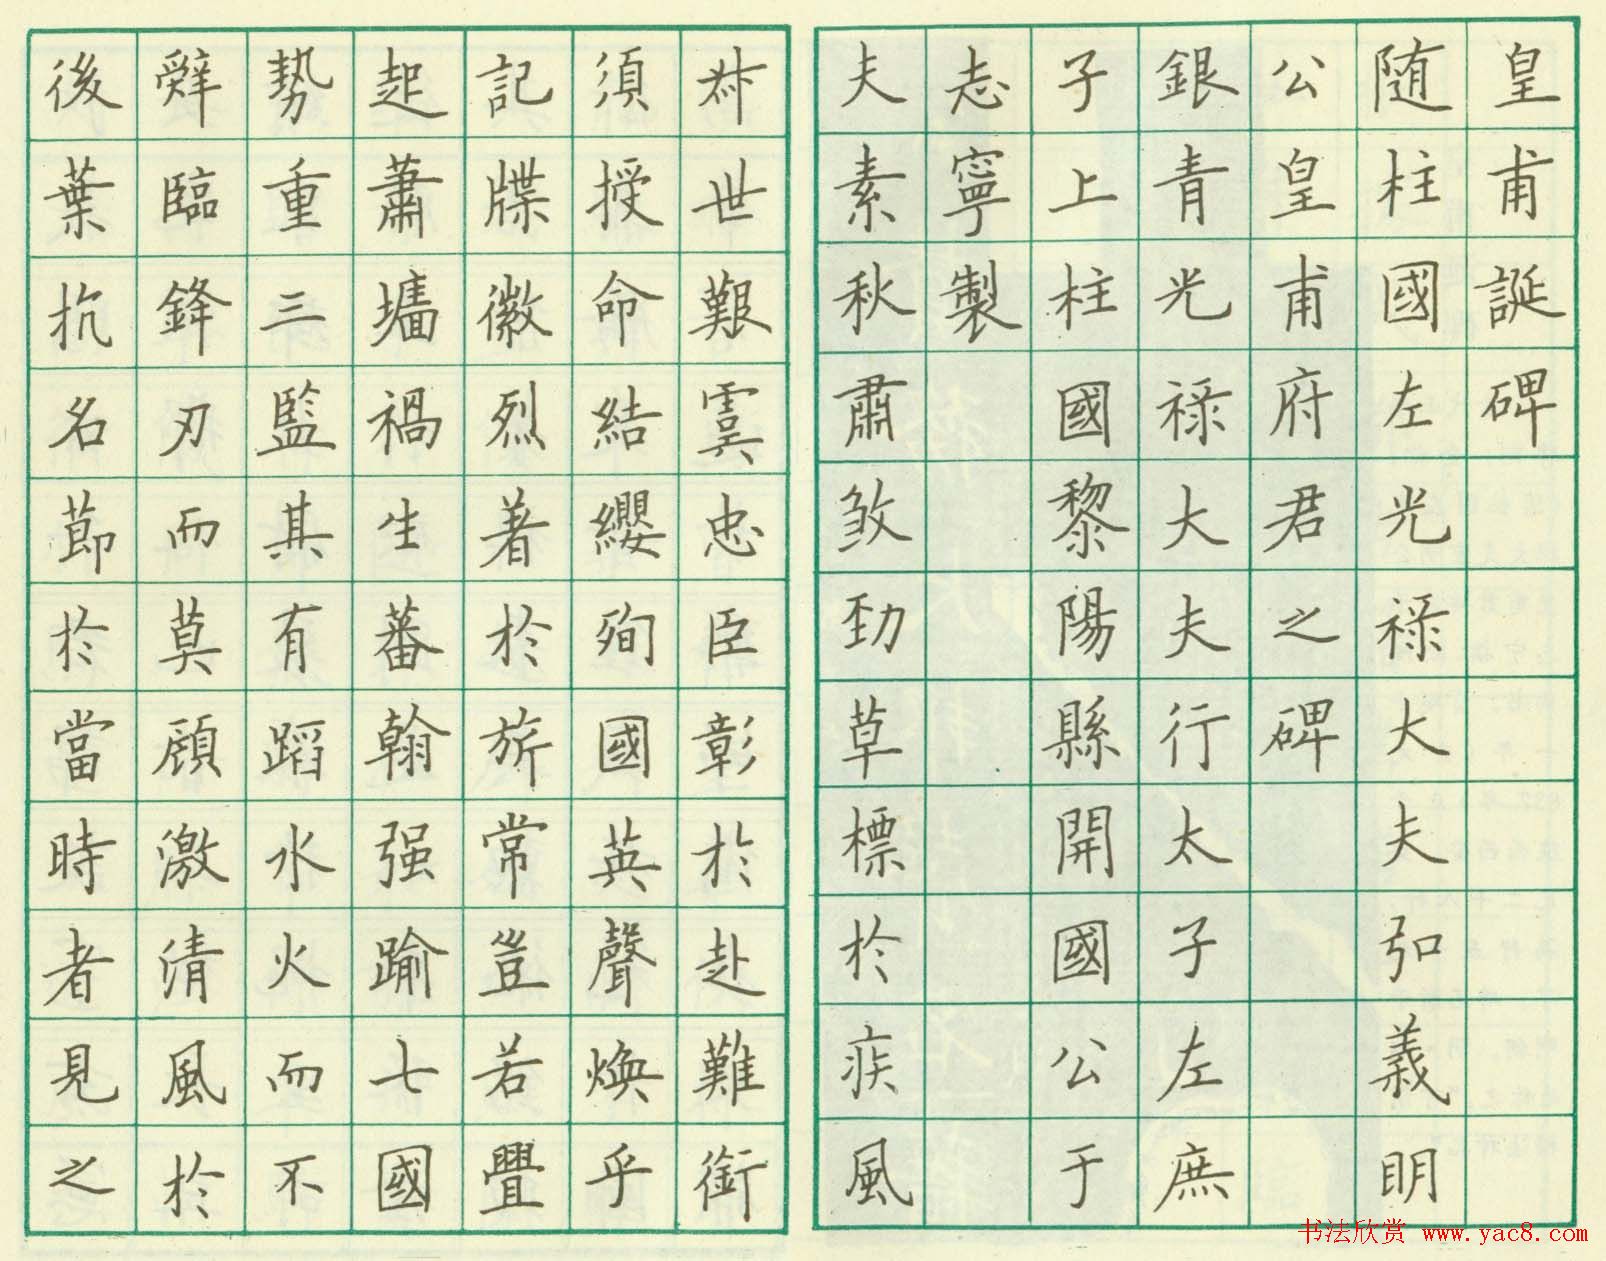 皇甫誕碑
随柱國左光禄大夫弘義眀
公皇甫府君之碑
銀青光禄大夫行太子左庶
子上柱國黎陽縣開國公于
志寧製
夫素秋肅煞勁草標於疾風
叔世艱虞忠臣彰於赴難銜
須授命結纓殉國英聲焕乎
記牒徽烈著於旂常豈若舋
起蕭墻禍生蕃翰强踰七國
勢重三監其有蹈水火而不
辤臨鋒刃而莫顧激清風於
後葉抗名節於當時者見之
书法欣赏 www.yac8.com